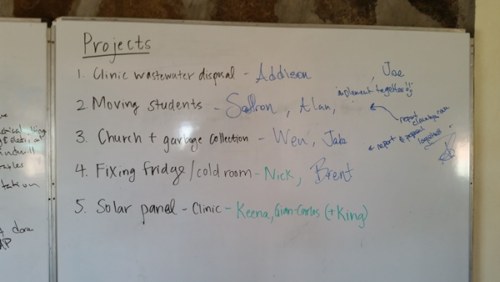 Projects
1. Clinic wastewater disposal - Addison
Joe
2 Moving students - Saffron, Alan,
3. Church + garbage collection - Wen, Jab
report & prepare
4. Fixing fridge/cold room - Nick, Brent
5. Solar panel - Clinic - Keena, Gian-Carlos (+King)